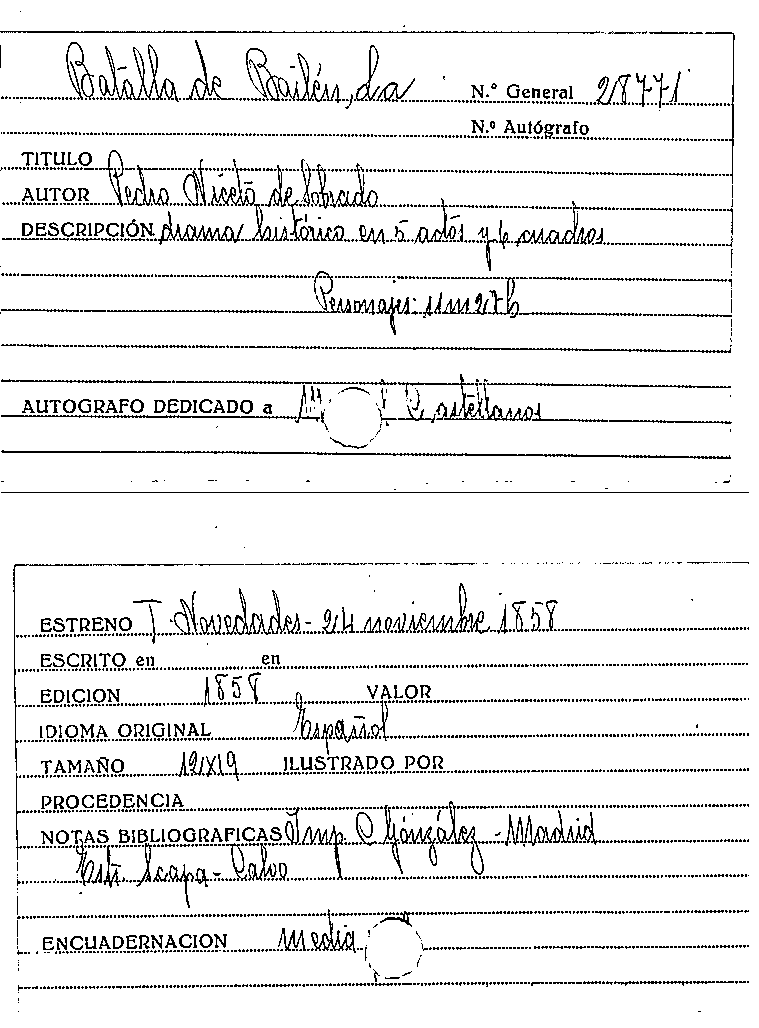 Batalla de Bailén, La N.º General 28771
N.º Autógrafo
TITULO
AUTOR Pedro Niceto de Sobrado
DESCRIPCIÓN drama histórico en 5 actos y 6 cuadros
Personajes: 11m 27h
AUTOGRAFO DEDICADO a Castellanos
ESTRENO T. Novedades - 24 noviembre 1858
ESCRITO en en
EDICION 1858 VALOR
IDIOMA ORIGINAL Español
TAMAÑO 12x19 ILUSTRADO POR
PROCEDENCIA
NOTAS BIBLIOGRAFICAS Imp. C González - Madrid
Calvo
ENCUADERNACION media